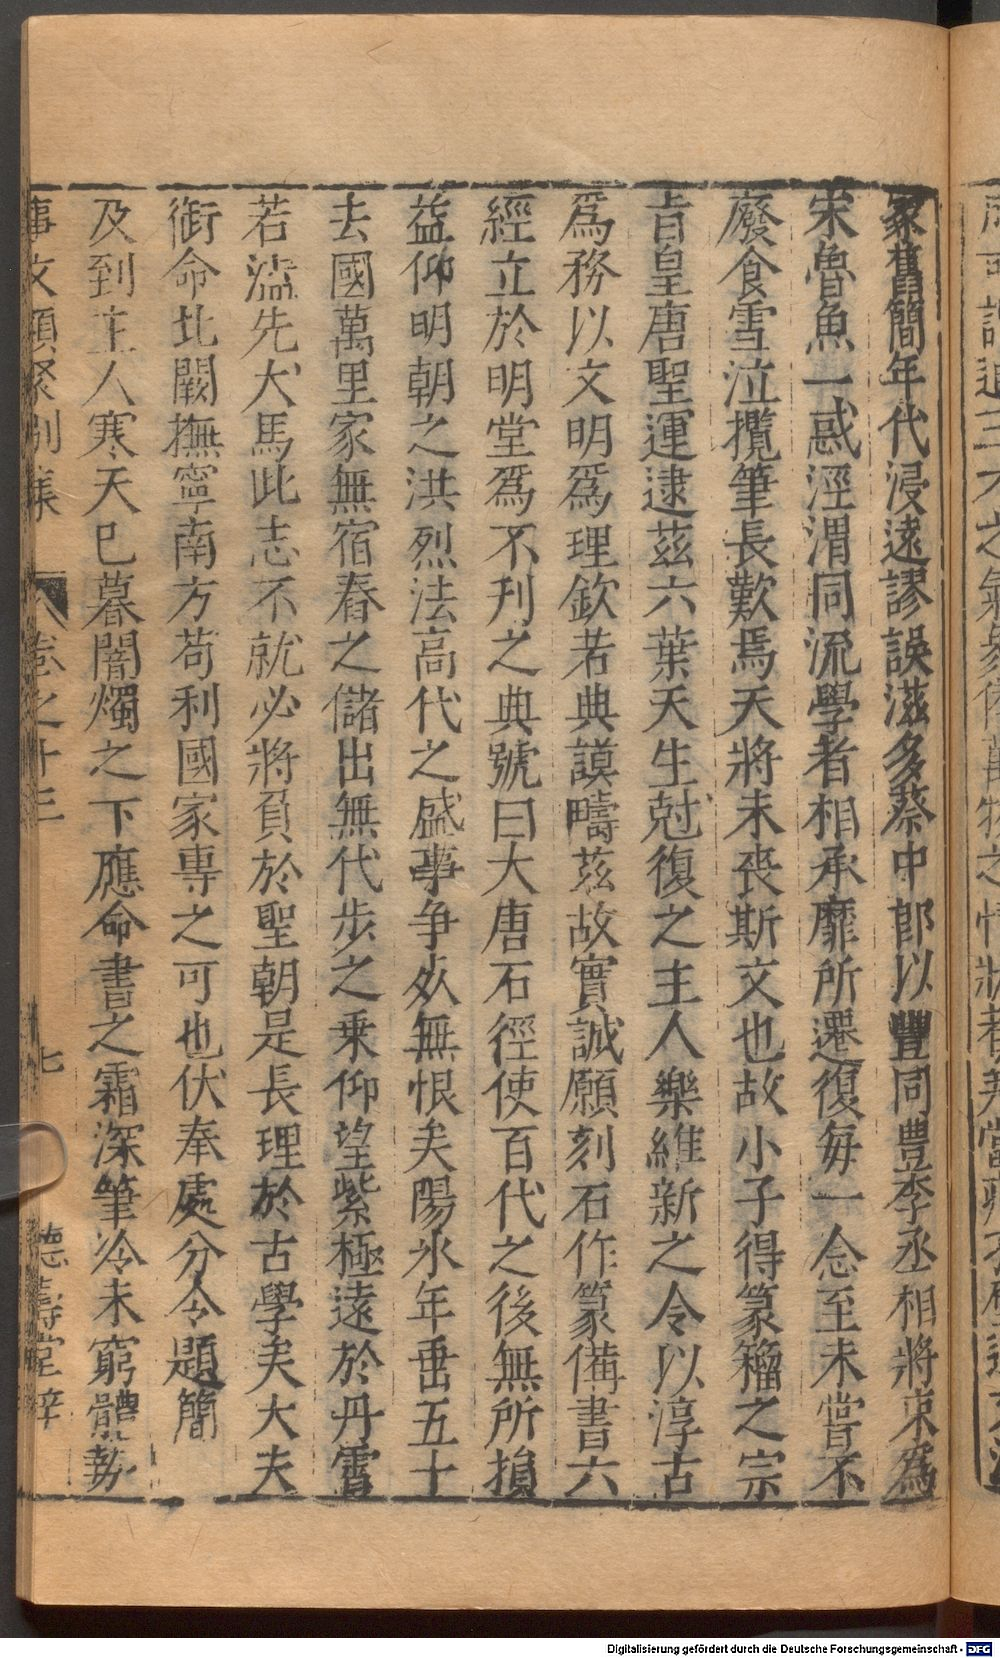 冢舊簡年代浸遠謬誤滋多蔡中郎以豐同豊李丞相將束爲
宋魯魚一惑涇渭同流學者相承靡所遷復每一念至未嘗不
廢食雪泣攬筆長歎焉天將未喪斯文也故小子得篆籀之宗
旨皇唐聖運逮茲六葉天生尅復之主人樂維新之令以淳古
爲務以文明爲理欽若典謨疇茲故實誠願刻石作篆備書六
經立於明堂爲不刊之典號曰大唐石徑使百代之後無所損
益仰明朝之洪烈法高代之盛事争𠫤無恨矣陽氷年垂五十
去國萬里家無宿舂之儲出無代步之乗仰望紫極遠於丹霄
若溘先犬馬此志不就必將負於聖朝是長理於古學矣大夫
銜命北闕撫寧南方苟利國家專之可也伏奉處分令題簡
及到主人寒天已暮闇燭之下應命書之霜深筆冷未窮體勢
事文類聚別集 卷之十三 七 德壽堂梓
Digitalisierung gefördert durch die Deutsche Forschungsgemeinschaft - DFG